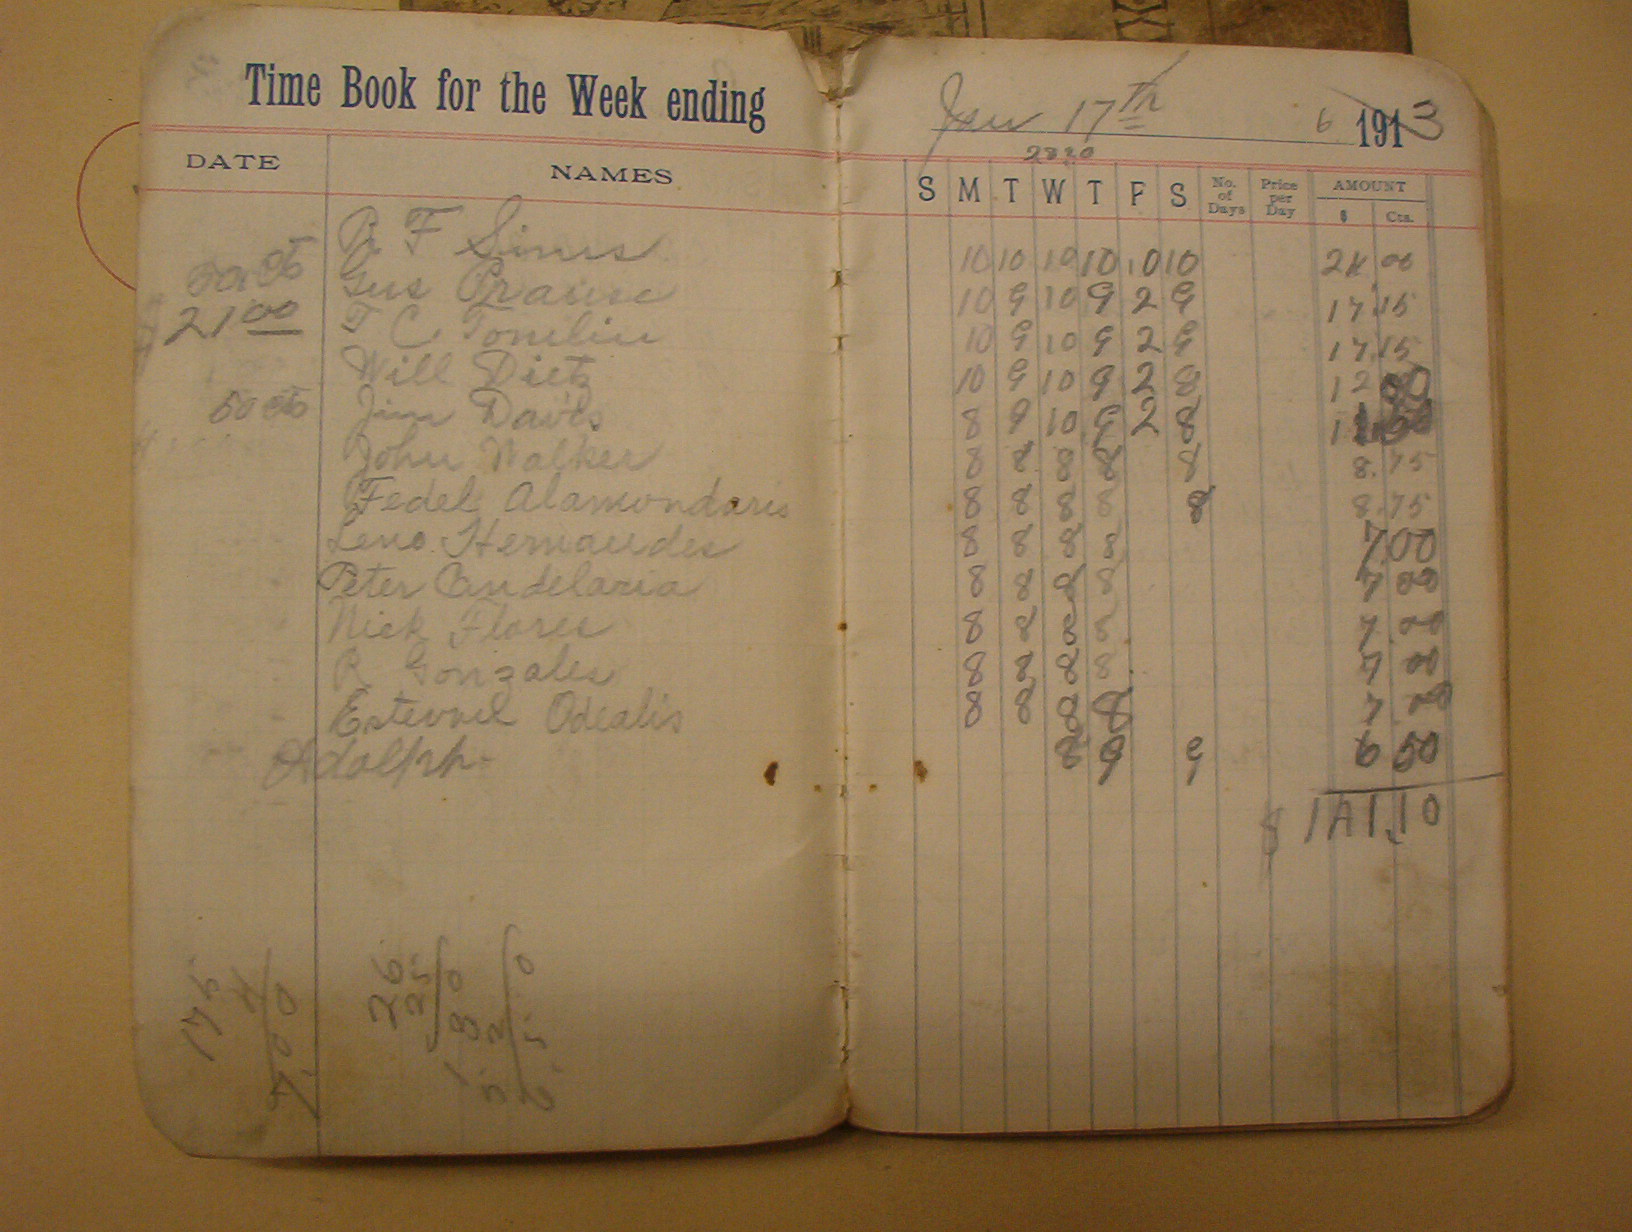 Time Book for the Week ending Jan 17th 6 1913
2830
DATE NAMES S M T W T F S No. of Days Price per Day AMOUNT $ Cts.
R F Sims 10 10 10 10 10 10 24 00
50 cts Gus Prause 10 9 10 9 2 9 17.15
21 00 T C Tomlin 10 9 10 9 2 9 17.15
Will Dietz 10 9 10 9 2 8 12 00
50 cts Jim Davis 8 9 10 9 2 8
John Walker 8 8 8 8 8 8.75
Fedel Alamondaris 8 8 8 8 8 8.75
Leno Hernandes 8 8 8 8 7.00
Peter Candelaria 8 8 8 8 7 00
Nick Flores 8 8 8 8 7.00
R Gonzales 8 8 8 8 7 00
Odealis 8 8 8 8 7.00
Adolph 8 9 9 6 50
$ 141.10
175
4
7.00
26
25
130
52